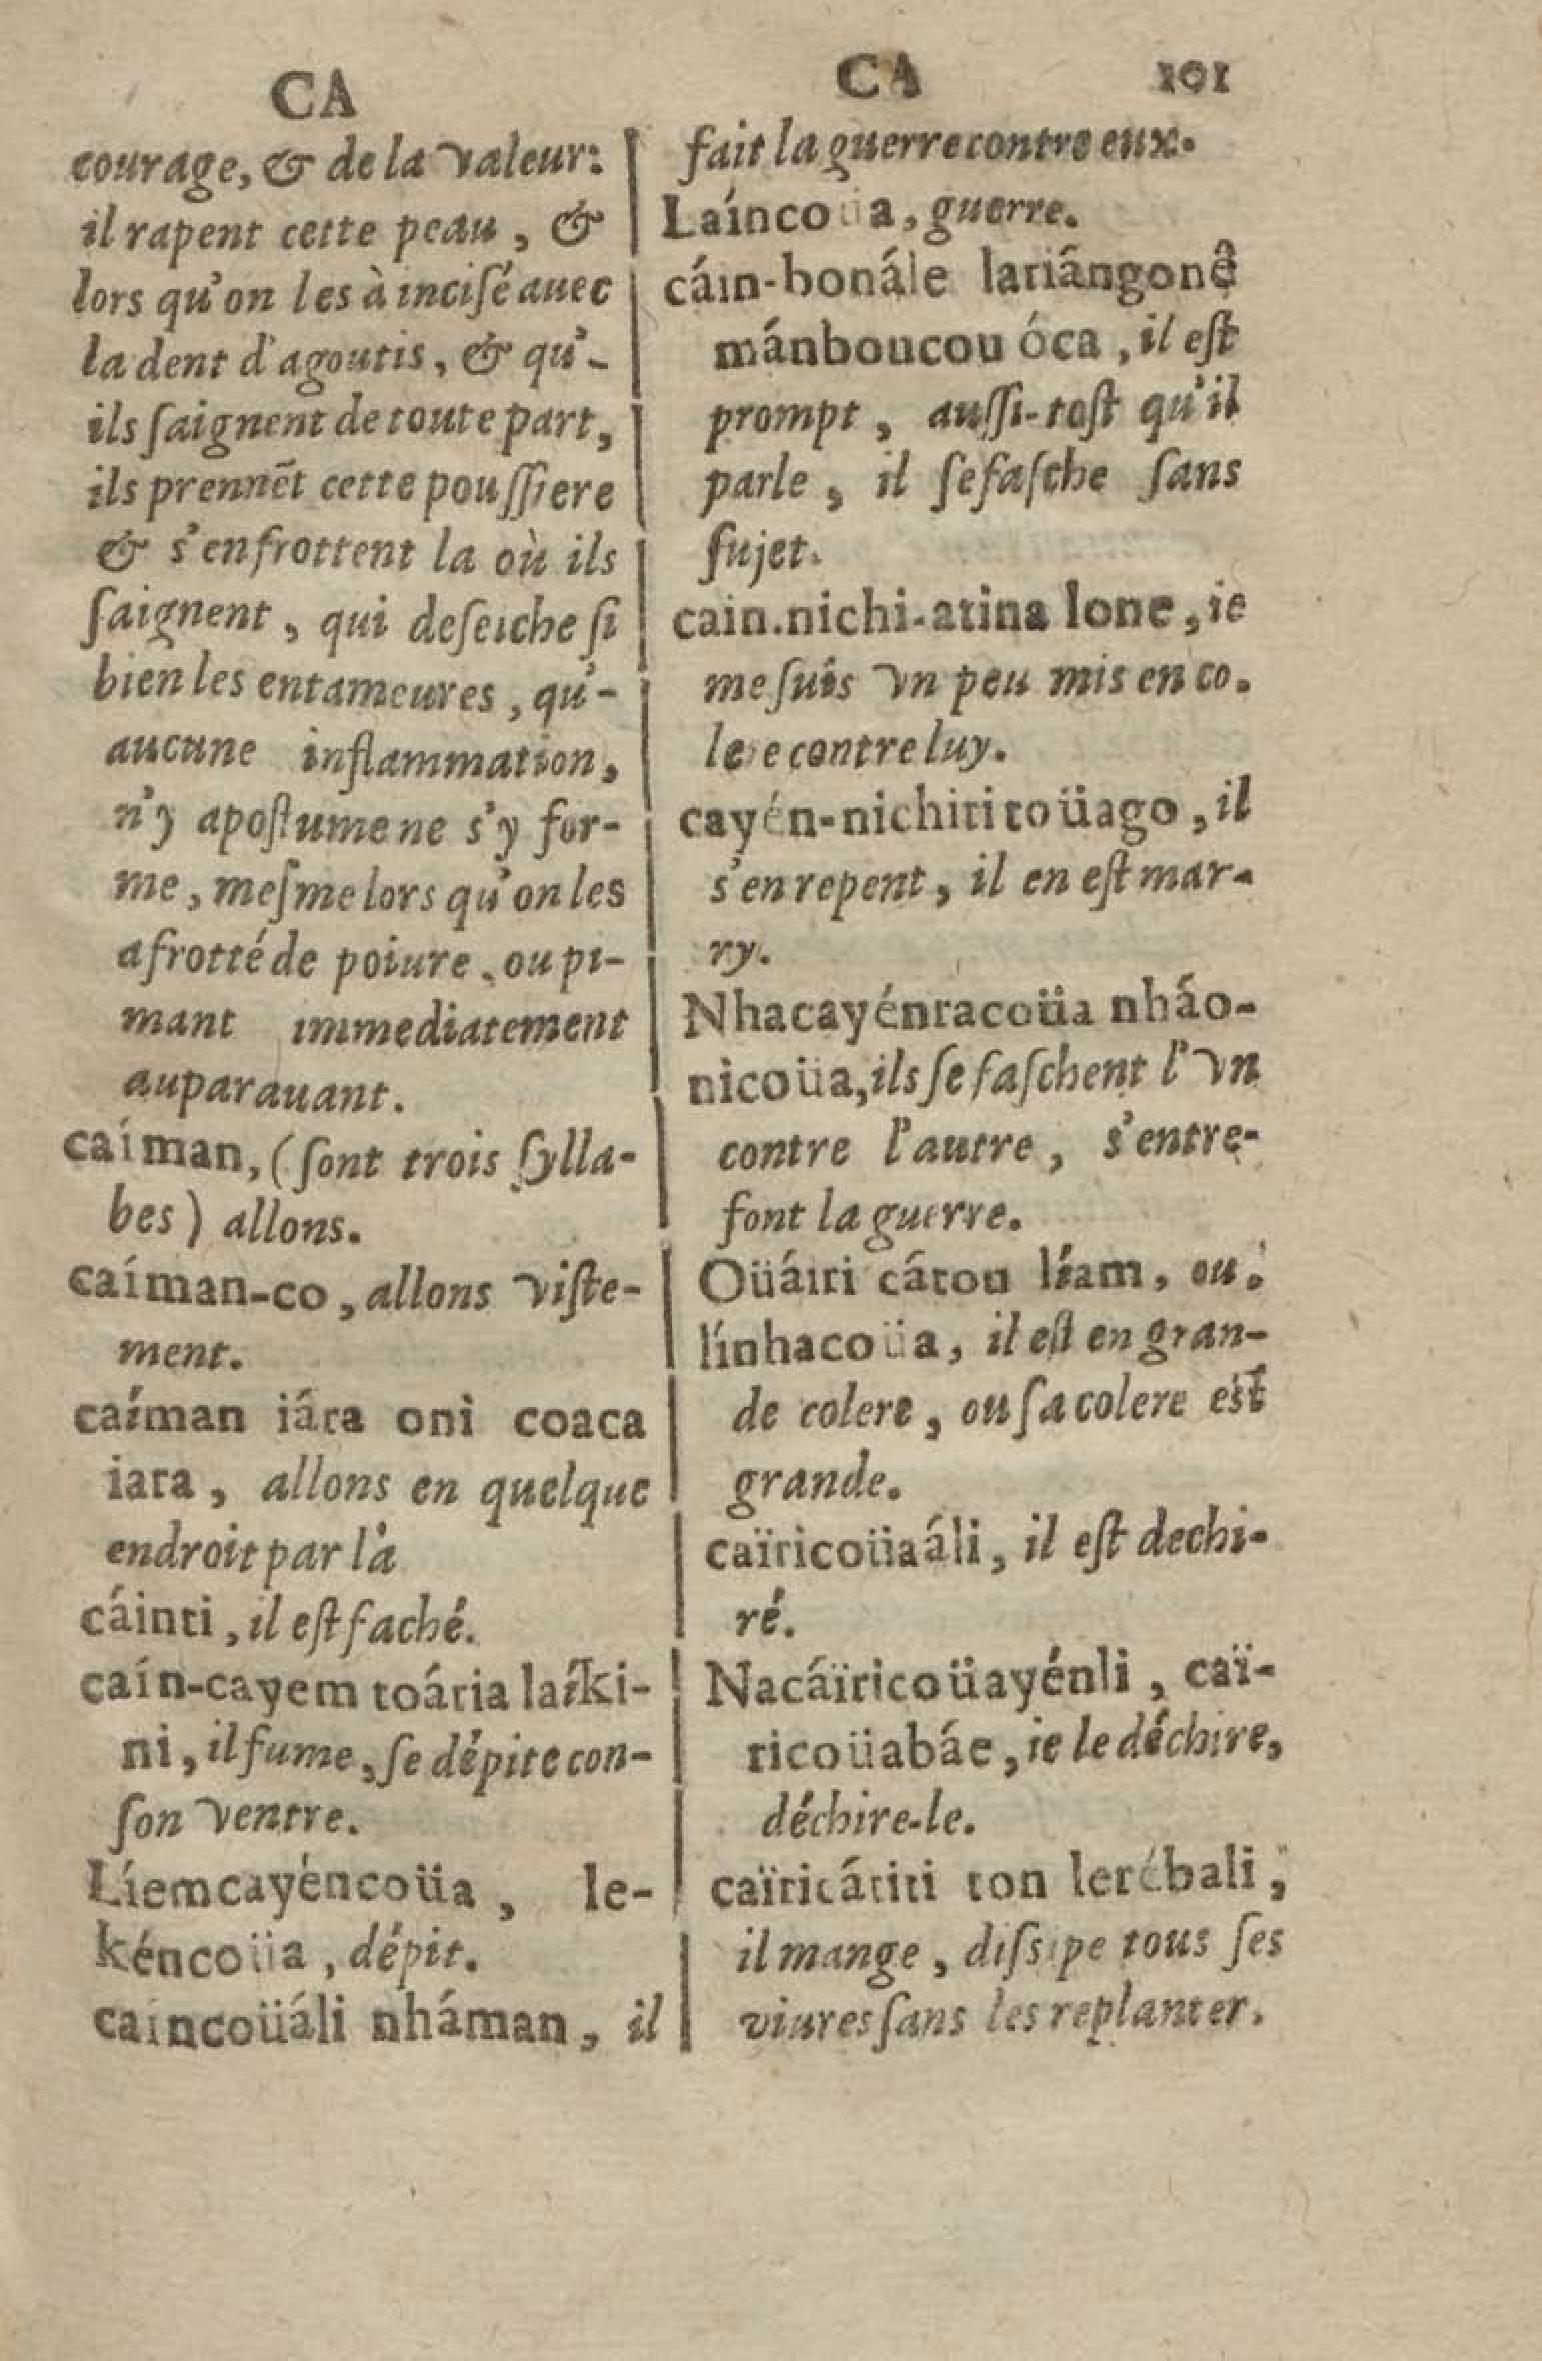 CA
courage, & de la valeur:
il rapent cette peau, &
lors qu'on les à incisé auec
la dent d'agoutis, & qu'-
ils saignent de toute part,
ils prennẽt cette poussiere
& s'en frottent la où ils
saignent, qui deseiche si
bien les entameures, qu'-
aucune inflammation,
n'y apostume ne s'y for-
me, mesme lors qu'on les
a frotté de poiure, ou pi-
mant immediatement
auparauant.
caíman, (sont trois sylla-
bes) allons.
caíman-co, allons viste-
ment.
caíman iára oni coaca
iara, allons en quelque
endroit par là
cáinti, il est faché.
caín-cayem toária laíki-
ni, il fume, se dépite con-
son ventre.
Líemcayéncoüa, le-
kéncoüa, dépit.
caíncoüáli nháman, il
CA 101
fait la guerre contre eux.
Laíncoüa, guerre.
cáin-bonále lariângonê
mánboucou óca, il est
prompt, aussi-tost qu'il
parle, il se fasche sans
sujet.
cain.nichi-atina lone, ie
me suis vn peu mis en co.
lere contre luy.
cayén-nichiti toüago, il
s'en repent, il en est mar-
ry.
Nhacayénracoüa nháo-
nicoüa, ils se faschent l'vn
contre l'autre, s'entre-
font la guerre.
Oüáiri cátou líam, ou.
línhacoüa, il est en gran-
de colere, ou sa colere est
grande.
caïricoüaáli, il est dechi-
ré.
Nacáïricoüayénli, caï-
ricoüabáe, ie le déchire,
déchire-le.
caïricátiti ton lerébali,
il mange, dissipe tous ses
viures sans les replanter.